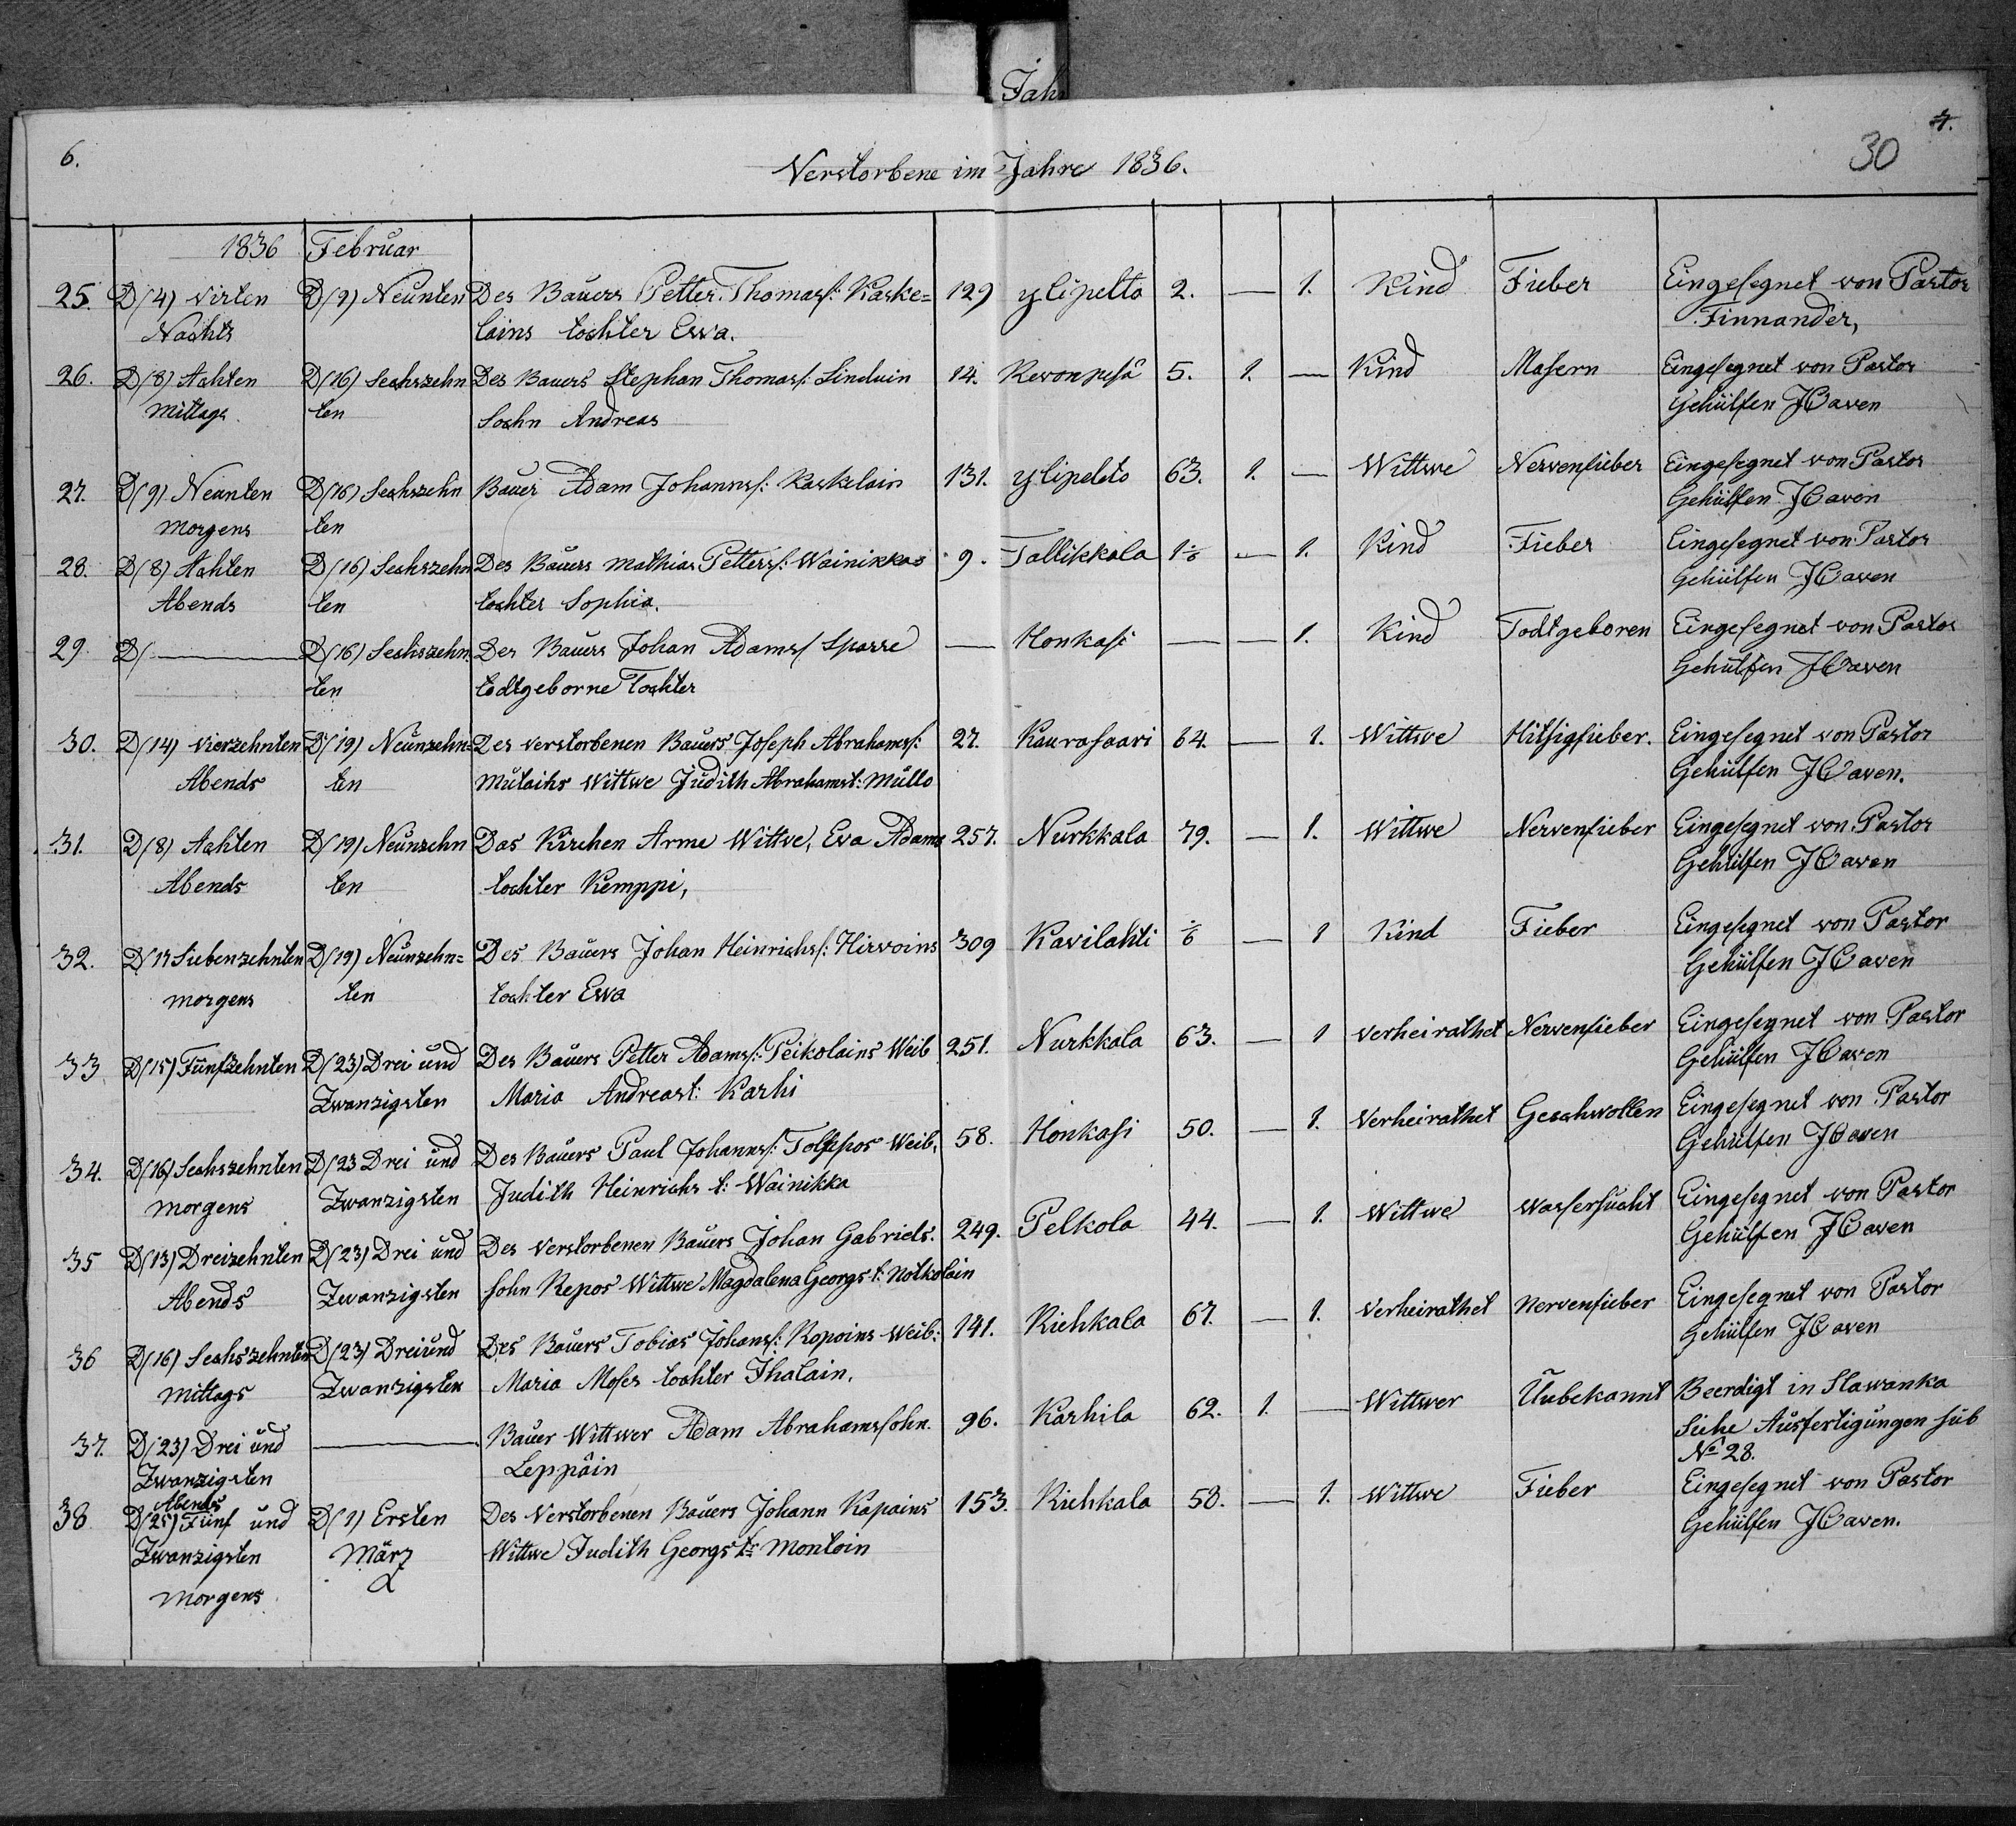 Jah
6.
7.
30
Verstorbene im Jahre 1836.
1836 Februar
25. D(4) Virten D(9) Neunten Des Bauers Petter Thomas/: Kaske= 129 ylipelto 2. — 1. Kind Fieber Eingesegnet von Pastor
Nachts lains tochter Ewa. Finnander,
26. D(8) Achten D(16) Sechszehn Des Bauers Stephan Thomas/: Sinduin 14. Revonpesä 5. 1. — Kind Masern Eingesegnet von Pastor
Mittags ten Sohn Andreas Gehülfen JHaven
27. D(9) Neunten D(16) Sechszehn Bauer Adam Johanns/: Kaskelain 131. ylipelto 63. 1. — Wittwe Nervenfieber Eingesegnet von Pastor
morgens ten Gehülfen JHaven
28. D(8) Achten D(16) Sechszehn Des Bauers Mathias Petters/: Wainikkas 9. Tallikkala 1 1/6 — 1. Kind Fieber Eingesegnet von Pastor
Abends ten tochter Sophia. Gehülfen JHaven
29. D( — D(16) Sechszehn Des Bauers Johan Adams/ Sparre — Honkasi — — 1. Kind Todtgeboren Eingesegnet von Pastor
ten todtgeborne Tochter Gehülfen JHaven
30. D(14) Vierzehnten D(19) Neunzehn= Des verstorbenen Bauers Joseph Abrahams/: 27. Kaurasaari 64. — 1. Wittwe Hitsigfieber. Eingesegnet von Pastor
Abends ten Mulaihs Wittwe Judith Abrahamst: Mullo Gehülfen JHaven.
31. D(8) Achten D(19) Neunzehn Das Kirchen Arme Wittwe, Eva Adams 257. Nurkkala 79. — 1. Wittwe Nervenfieber Eingesegnet von Pastor
Abends ten tochter Kemppi, Gehülfen JHaven
32. D(17 Siebenzehnten D(19) Neunzehn= Des Bauers Johan Heinrichs/: Hirvoins 309 Kavilahti 1/6 — 1 Kind Fieber Eingesegnet von Pastor
morgens ten tochter Ewa Gehülfen JHaven
33 D(15) Fünfzehnten D(23) Drei und Des Bauers Petter Adams/: Peikolains Weib 251. Nurkkala 63. — 1 verheirathet Nervenfieber Eingesegnet von Pastor
Zwanzigsten Maria Andreast: Karhi Gehülfen JHaven
34. D(16) Sechszehnten D(23 Drei und Des Bauers Paul Johanns/: Weib, 58. Honkasi 50. — 1. Verheirathet Geschwollen Eingesegnet von Pastor
morgens Zwanzigsten Judith Heinrichs t: Wainikka Gehülfen JHaven
35 D(13) Dreizehnten D(23) Drei und Des verstorbenen Bauers Johan Gabriels. 249. Pelkola 44. — 1. Wittwe Wassersucht Eingesegnet von Pastor
Abends Zwanzigsten sohn Repos Wittwe Magdalena Georgs t: Notkolain Gehülfen JHaven
36 D(16) Sechszehnten D(23) Drei und Des Bauers Tobias Johans/: Kopoins Weib: 141. Riehkala 67. — 1. Verheirathet Nervenfieber Eingesegnet von Pastor
mittags Zwanzigsten Maria Moses tochter Ihalain. Gehülfen JHaven
37. D(23) Drei und — Bauer Wittwer Adam Abrahamssohn. 96. Karhila 62. 1. — Wittwer Unbekannt Beerdigt in Slawanka
Zwanzigsten Leppäin Siehe Ausfertigungen sub
Abends No 28.
38 D(25) Fünf und D(1) Ersten Des Verstorbenen Bauers Johann Kapains 153. Riehkala 58. — 1. Wittwe Fieber Eingesegnet von Pastor
Zwanzigsten März Wittwe Judith Georgs tr Montoin Gehülfen JHaven.
morgens